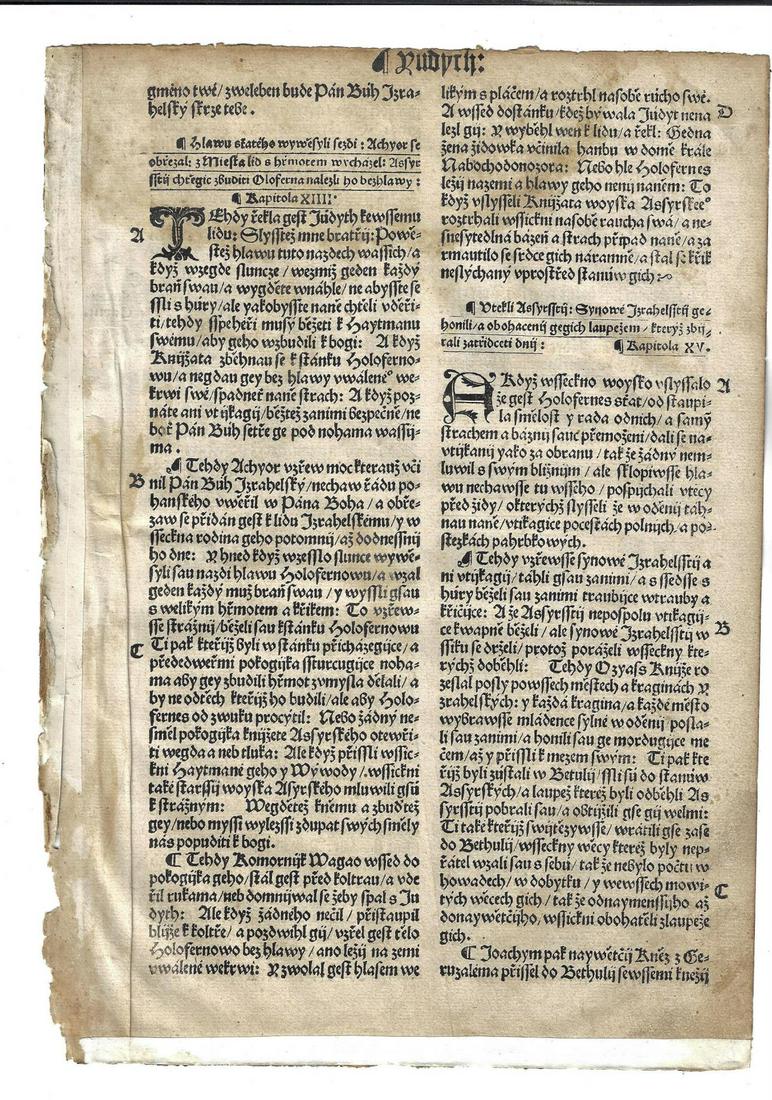 ¶ Judyth:
gméno twé / zweleben bude Pán Bůh Jzra-
helský skrze tebe.
¶ Hlawu statého wywěsyli sezdi: Achyor se
obřezal: z Miesta lid s hřmotem wycházel: Assyr
sstij chtěgic zbuditi Oloferna nalezli ho bezhlawy:
¶ Kapitola XIIII.
A
TEhdy řekla gest Júdyth kewssemu
lidu: Slysstež mne bratřij: Powě-
stež hlawu tuto nazdech wassich / a
když wzegde slunce / wezmiž geden každý
braň swau / a wygděte wnáhle / ne abysste se
ssli s húry / ale yakobysste naně chtěli vdeři-
ti / tehdy sspehéři musý běžeti k Haytmanu
swému / aby geho wzbudili k bogi: A když
Knijžata zběhnau se k stánku Holoferno-
wu / a negdau gey bez hlawy vwáleného we-
krwi swé / spadneť naně strach: A když poz-
náte ani vtijkagij / běžtež zanimi bezpečně / ne
boť Pán Bůh setře ge pod nohama wassij-
ma.
B
¶ Tehdy Achyor vzřew moc kterauž vči
nil Pán Bůh Jzrahelský / nechaw řádu po-
hanského vwěřil w Pána Boha / a obře-
zaw se přidán gest k lidu Jzrahelskému / y w
sseckna rodina geho potomnij / až do dnessnij
ho dne: Y hned když wzesslo slunce wywě-
syli sau nazdi hlawu Holofernowu / a wzal
geden každý muž braň swau / y wyssli gsau
s welikým hřmotem a křikem: To vzřew-
sse strážnij / běželi sau kstánku Holofernowu
C
Ti pak kteřijž byli w stánku přicházegijce / a
přede dweřmi pokogijka ssturcugijce noha-
ma aby gey zbudili hřmot zvmysla dělali / a
by ne od těch kteřijž ho budili / ale aby Holo-
fernes od zwuku procýtil: Nebo žádný ne-
směl pokogijka knijžete Assyrského otewřij-
ti wegda a neb tluka: Ale když přissli wssic-
kni Haytmané geho y Wýwody / wssickni
také starssij woyska Asyrského mluwili gsú
k strážným: Wegdětež kněmu a zbuďtež
gey / nebo myssi wylezssi z dupat swých směly
nás popuditi k bogi.
¶ Tehdy Komornijk Wagao wssed do
pokogijka geho / stál gest před koltrau / a vde
řil rukama / neb domnijwal se žeby spal s Ju
dyth: Ale když žádného nečil / přistaupil
blijže k koltře / a pozdwihl gij / vzřel gest tělo
Holofernowo bez hlawy / ano ležij na zemi
vwálené wekrwi: Y zwolal gest hlasem we
likým s pláčem / a roztrhl nasobě rúcho swé.
D
A wssed do stánku / kdež býwala Júdyt nena
lezl gij: Y wyběhl wen k lidu / a řekl: Gedna
žena židowka včinila hanbu w domě krále
Nabochodonozora: Nebo hle Holofernes
ležij na zemi a hlawy geho nenij naněm: To
když vslysseli Knijžata woyska Assyrského
roztrhali wssickni nasobě raucha swá / a ne-
snesytedlná bázeň a strach připad naně / a za
rmautilo se srdce gich náramně / a stal se křik
neslýchaný vprostřed stanůw gich:
¶ Vtekli Assyrsstij: Synowé Jzrahelsstij ge-
honili / a obohacenij gegich laupežem / kterýž zbij-
rali zatřidceti dnij:
¶ Kapitola XV.
A
A Když wssecko woysko vslyssalo
že gest Holofernes sťat / odstaupi-
la smělost y rada od nich / a samým
strachem a bázní sauc přemoženi / dali se na-
vtijkanij yako za obranu / tak že žádný nem-
luwil s swým bližnijm / ale sklopiwsse hla-
wu nechawsse tu wsseho / pospijchali vtecy
před židy / o kterýchž slysseli že w oděnij táh-
nau naně / vtikagice po cestách polných / a po-
stezkách pahrbkowých.
¶ Tehdy vzřewsse synowé Jzrahelsstij a
ni vtijkagij / táhli gsau zanimi / a s ssedsse s
húry běželi sau zanimi traubijce w trauby a
křičijce: A že Assyrsstij ne pospolu vtikagij-
B
ce kwapně běželi / ale synowé Jzrahelsstij w
ssiku se drželi / protož poráželi wssecky kte-
rýchž doběhli: Tehdy Ozyass Knijže ro
zeslal posly po wssech městech a kraginách Y
zrahelských: y každá kragina / a každé město
wybrawsse mládence sylné w oděnij posla-
li sau zanimi / a honili sau ge mordugijce me
čem / až y přissli k mezem swým: Ti pak kte
řijž byli zůstali w Betulij / ssli sú do stanůw
Assyrských / a laupež kterěž byli odběhli As
syrsstij pobrali sau / a obtijžili gse gij welmi:
Ti také kteřijž swijtězywsse / wrátili gse zase
do Bethulij / wsseckny wěcy kteréž byly nep-
řátel wzali sau s sebú / tak že nebylo počtu w
C
howadech / w dobytku / y wewssech mowi-
tých wěcech gich / tak že od naymenssijho až
do naywětčijho / wssickni obohatěli z laupeže
gich.
¶ Joachym pak naywětčij Kněz z Ge-
ruzaléma přissel do Bethulij se wssemi kněžij